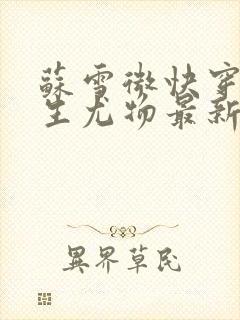 蘇雪微快穿
生尤物最新
異界草民